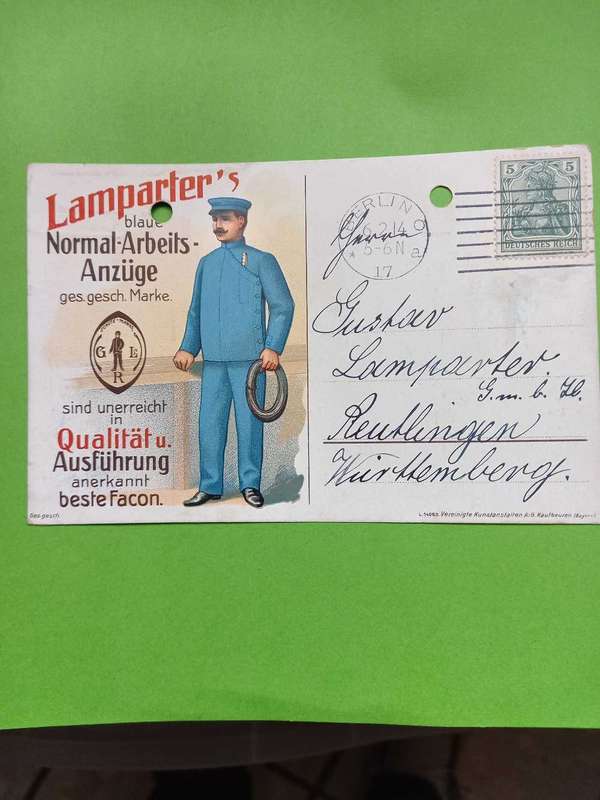 Lamparter's
blaue
Normal-Arbeits-
Anzüge
ges. gesch. Marke.
SCHUTZ-MARKE
G L
R
sind unerreicht
in
Qualität u.
Ausführung
anerkannt
beste Facon.
Ges. gesch.
BERLIN O
6.2.14
5-6N
* 17 a
5 5
DEUTSCHES REICH
Herrn
Gustav
Lamparter.
G. m. b. H.
Reutlingen
Württemberg.
Vereinigte Kunstanstalten A.G. Kaufbeuren (Bayern)